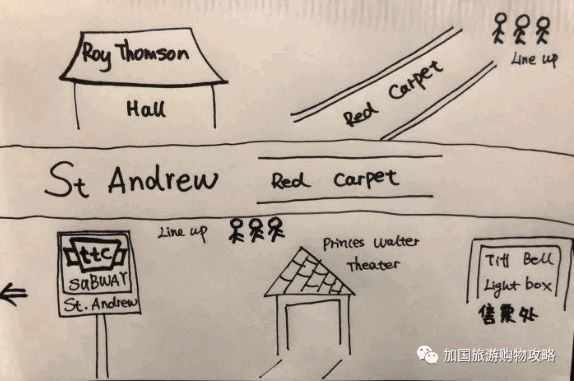 Roy Thomson
Hall
Line up
Red Carpet
St Andrew
Red Carpet
Line up
ttc
SUBWAY
St. Andrew
Princes Walter
Theater
Tiff Bell
Light box
售票处
加国旅游购物攻略